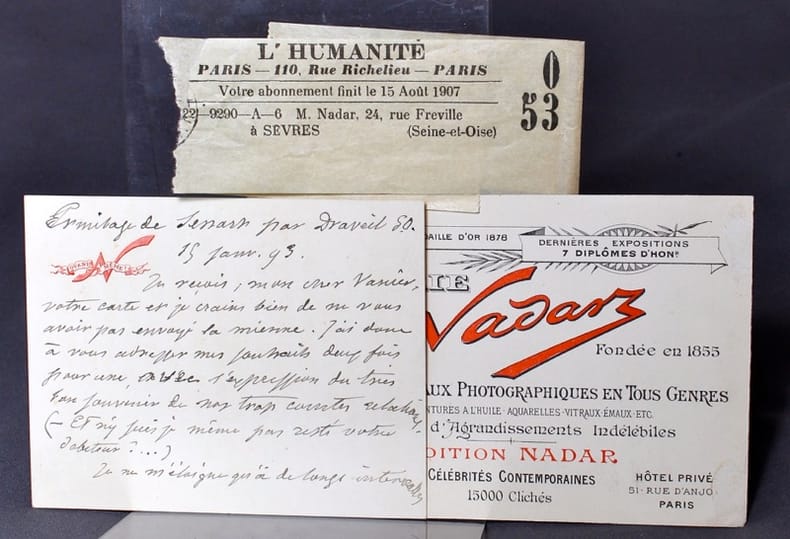 L'HUMANITÉ
PARIS — 110, Rue Richelieu — PARIS
Votre abonnement finit le 15 Août 1907
22—9290—A—6 M. Nadar, 24, rue Freville
à SÈVRES (Seine-et-Oise)
0
53
Ermitage de Senart par Draveil SO.
15 janv. 93.
QUAND MÊME!
Je reçois, mon cher Vanier,
votre carte et je crains bien de ne vous
avoir pas envoyé la mienne. J'ai donc
à vous adresser mes souhaits deux fois
pour une, avec l'expression du très
bon souvenir de nos trop courtes relations.
(— Et n'y suis je même pas resté votre
débiteur ?...)
Je ne m'éloigne qu'à de longs intervalles
DAILLE D'OR 1878
DERNIÈRES EXPOSITIONS
7 DIPLÔMES D'HONR
IE
Nadar
Fondée en 1855
AUX PHOTOGRAPHIQUES EN TOUS GENRES
INTURES A L'HUILE-AQUARELLES-VITRAUX-ÉMAUX-ETC.
d'Agrandissements Indélébiles
DITION NADAR
CÉLÉBRITÉS CONTEMPORAINES
15000 Clichés
HÔTEL PRIVÉ
51-RUE D'ANJO
PARIS